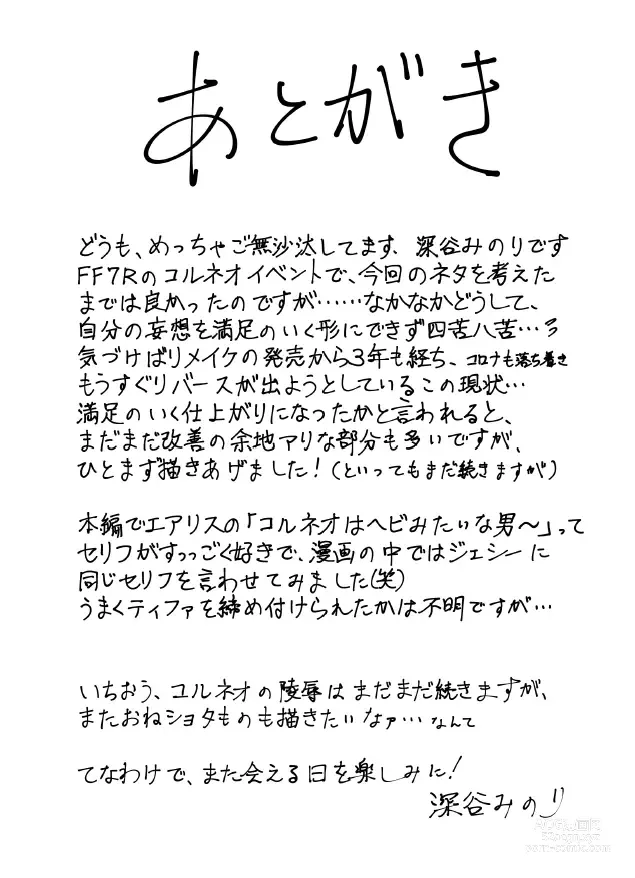 あとがき
どうも、めっちゃご無沙汰してます、深谷みのりです
FF7Rのコルネオイベントで、今回のネタを考えた
までは良かったのですが……なかなかどうして、
自分の妄想を満足のいく形にできず四苦八苦…う
気づけばリメイクの発売から3年も経ち、コロナも落ち着き
もうすぐリバースが出ようとしているこの現状…
満足のいく仕上がりになったかと言われると、
まだまだ改善の余地アリな部分も多いですが、
ひとまず描きあげました!(といってもまだ続きますが)
本編でエアリスの「コルネオはヘビみたいな男〜」って
セリフがすっっごく好きで、漫画の中ではジェシーに
同じセリフを言わせてみました(笑)
うまくティファを締め付けられたかは不明ですが…
いちおう、コルネオの陵辱はまだまだ続きますが、
またおねショタものも描きたいなァ…なんて
てなわけで、また会える日を楽しみに!
深谷みのり